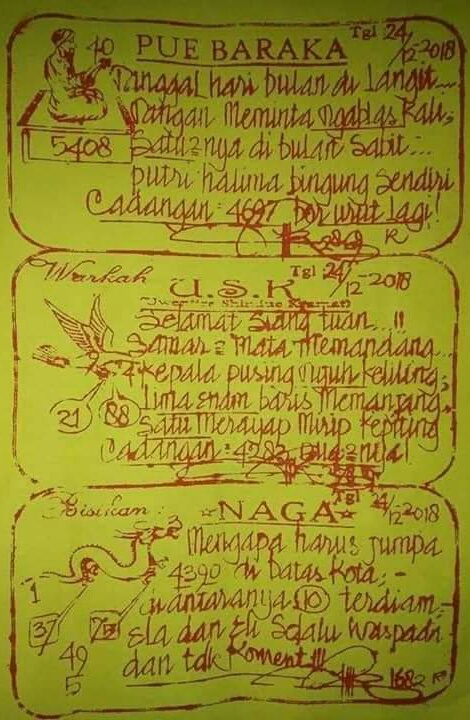 PUE BARAKA
Tgl 24/12-2018
40
Tanggal hari bulan di langit....
Jangan Meminta ngablas kali;
5408
Satu2nya di bulan Sabit...
putri halima bingung Sendiri
Cadangan: 4697 ber urut lagi!
Warkah
U.S.K
Tgl 24/12-2018
Selamat Siang tuan...!!
Samar2 Mata Memandang...
4 Kepala pusing nguh keliling;
21 88
lima enam baris Memanjang
Satu Merayap Mirip kepiting
Cadangan: 4282
Bisikan:
☆NAGA☆
Tgl 24/12-2018
3
Mengapa harus jumpa
4390 di batas kota;-
1
diantaranya 10 terdiam,-
37
Ela dan Eli Selalu waspada
49
dan tak Koment!!!
5